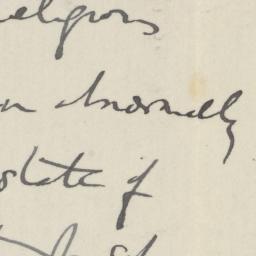 religious
an abnormally
state of